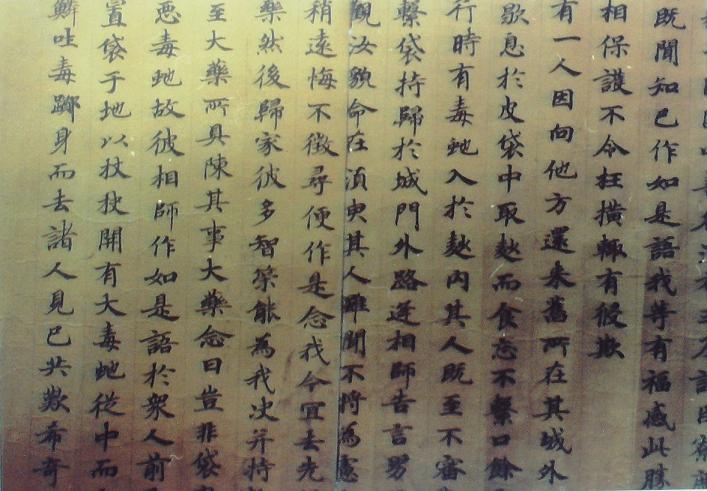 既聞知已作如是語我等有福感此勝
相保護不令枉撗輙有侵欺
有一人因向他方還来舊所在其城外
歇息於皮袋中取麨而食忘不繫口餘
行時有毒虵入於麨内其人既至不審
繫袋持歸於城門外路逢相師告言男
觀汝貌命在湏臾其人雖聞不將為憲
稍遠悔不徴尋便作是念我今宜去先
藥然後歸家彼多智策能為我决并持
至大藥所具陳其事大藥念曰豈非袋
悪毒虵故彼相師作如是語於衆人前
置袋于地以杖抉開有大毒虵從中而
吐毒躑身而去諸人見已共歎希奇